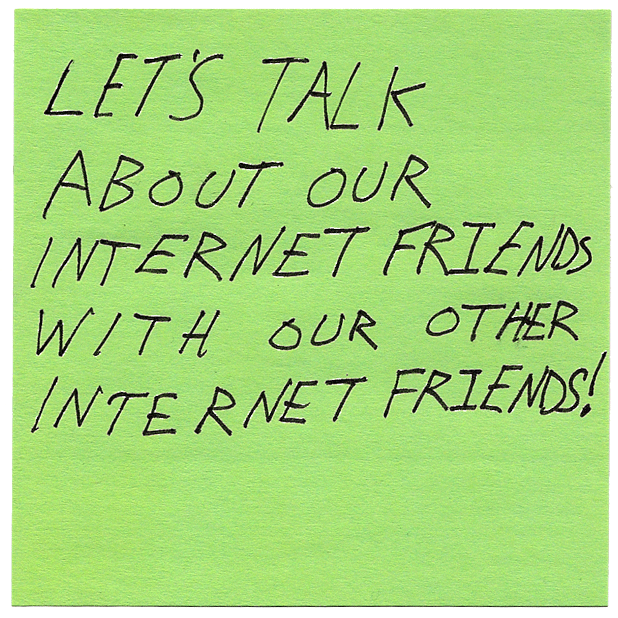 LET'S TALK
ABOUT OUR
INTERNET FRIENDS
WITH OUR OTHER
INTERNET FRIENDS!